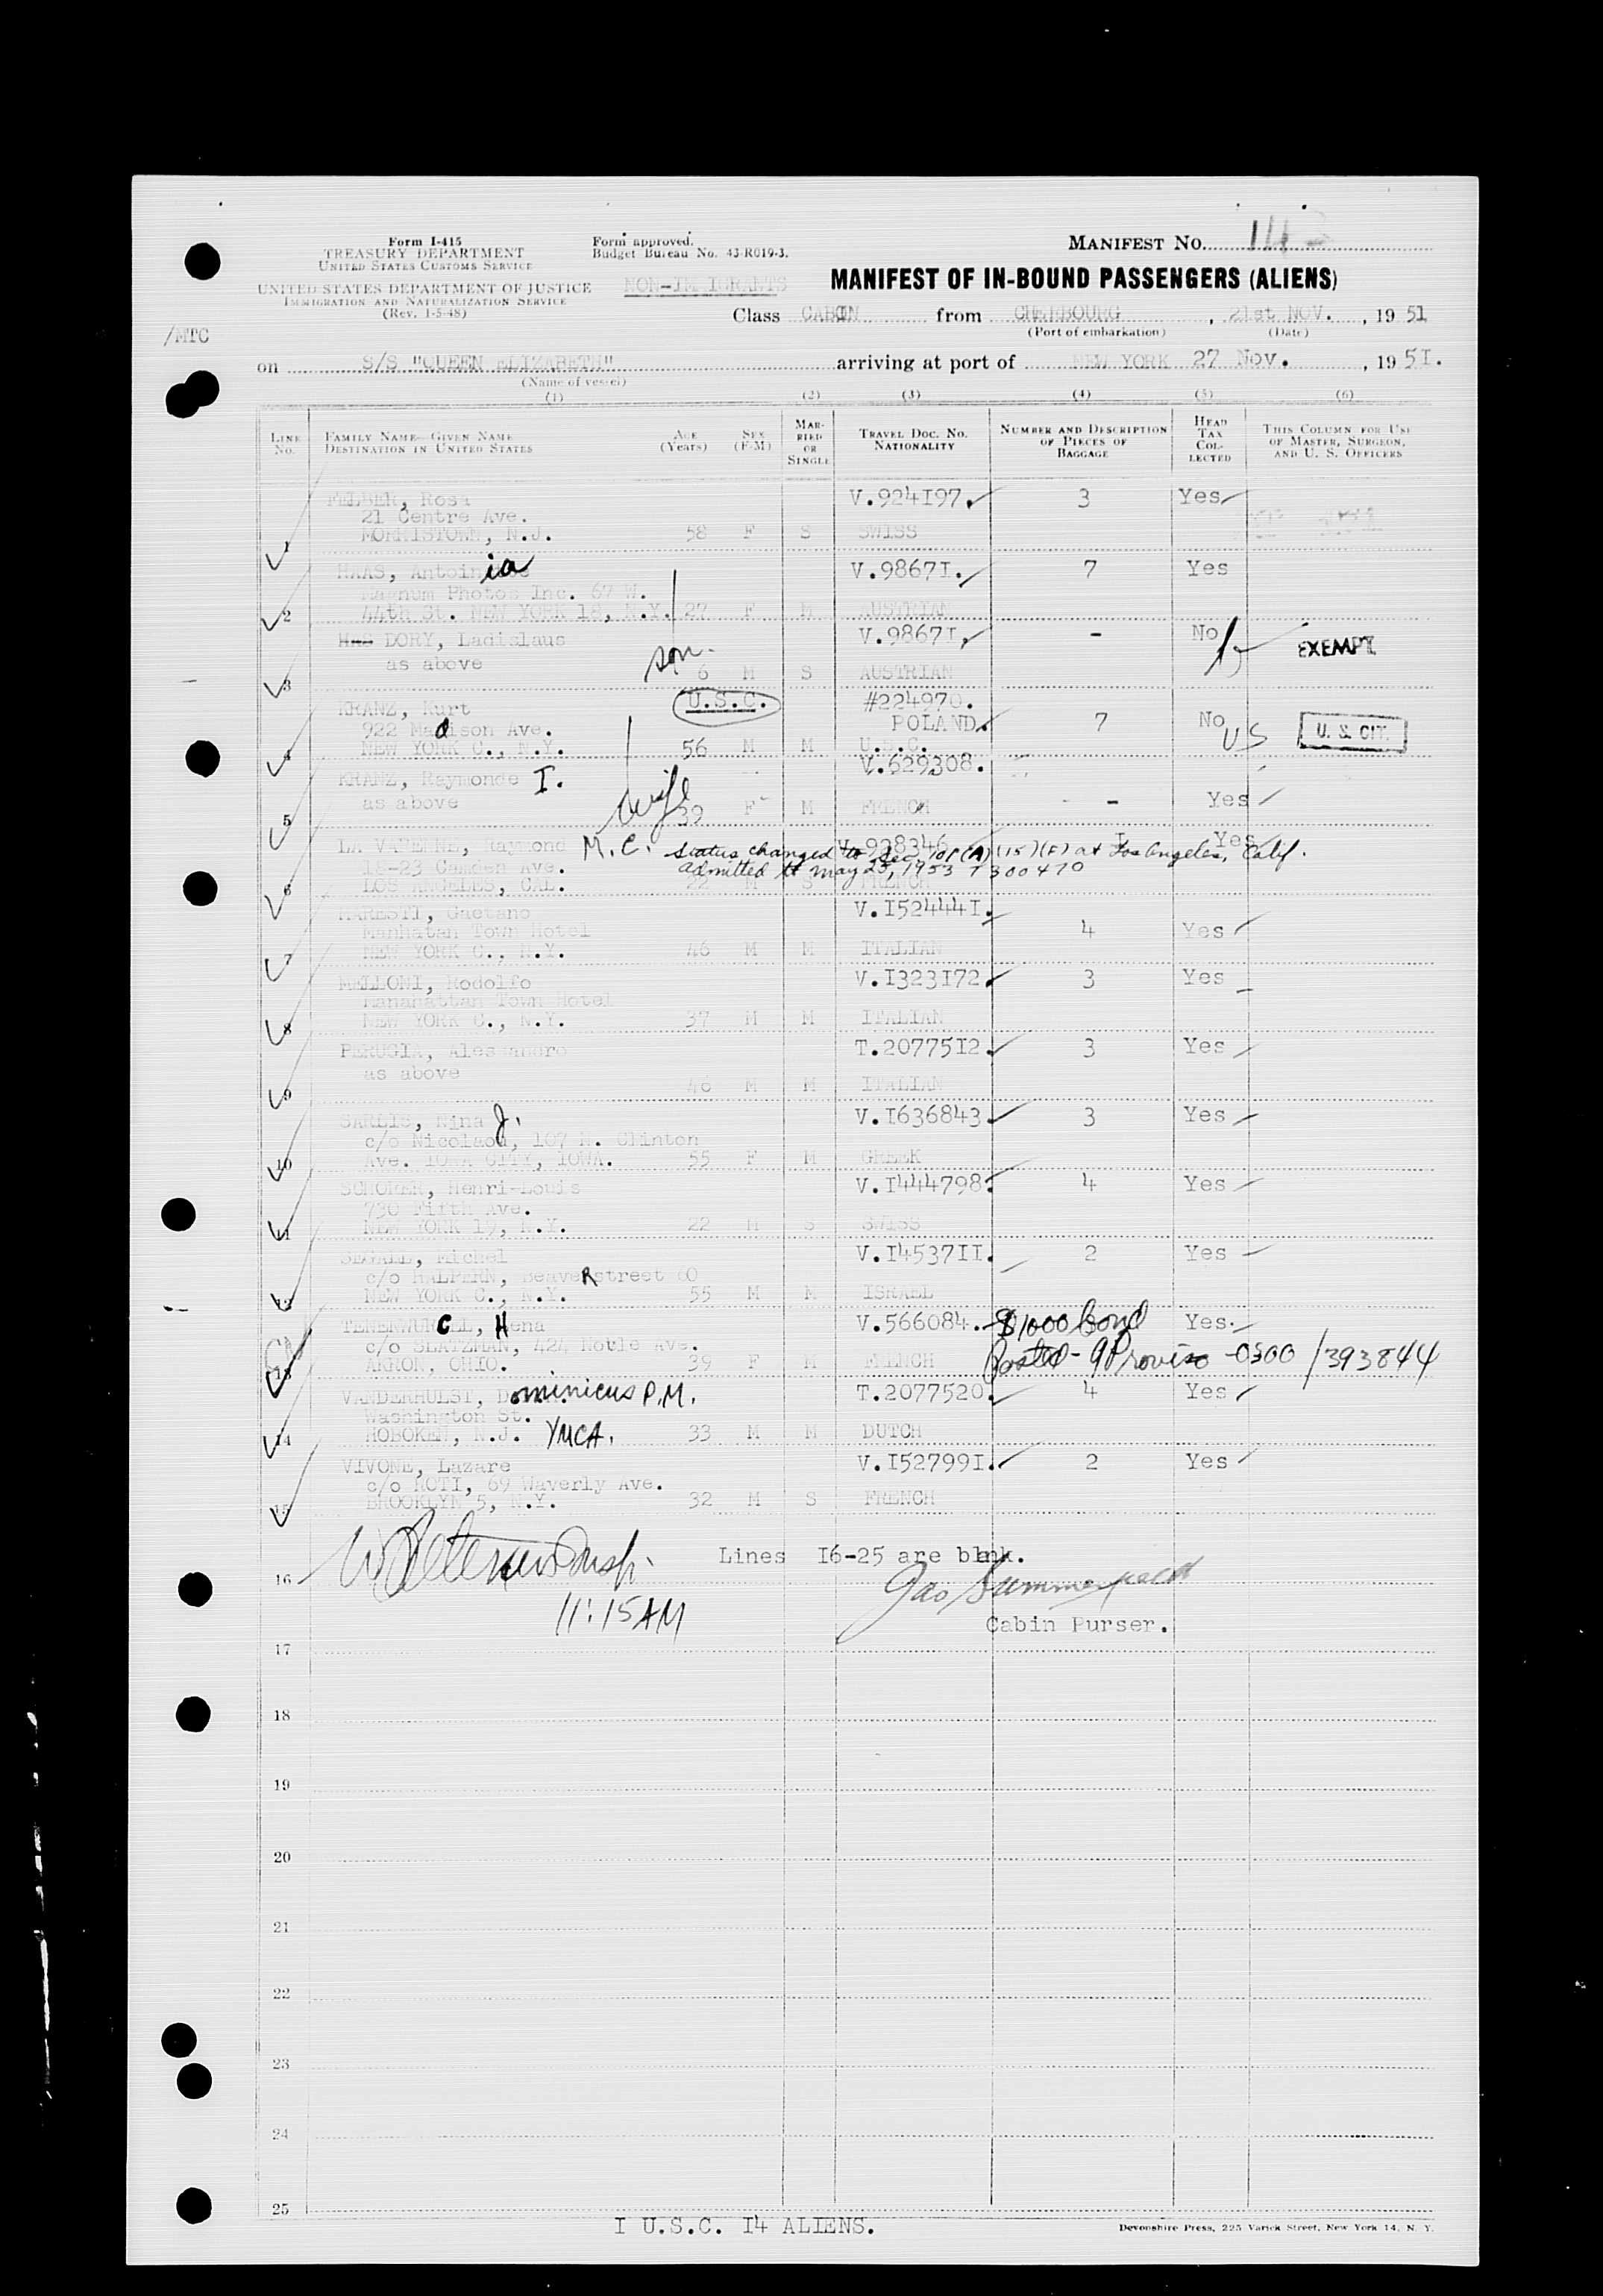 Form I-415
TREASURY DEPARTMENT
UNITED STATES CUSTOMS SERVICE
UNITED STATES DEPARTMENT OF JUSTICE
IMMIGRATION AND NATURALIZATION SERVICE
(Rev. 1-5-48)
Form approved.
Budget Bureau No. 43-R019-3.
NON-IMMIGRANTS
MANIFEST No. 
MANIFEST OF IN-BOUND PASSENGERS (ALIENS)
Class CABIN from CHERBOURG, 21st NOV., 19 51
(Port of embarkation) (Date)
/MTC
on S/S "QUEEN ELIZABETH" arriving at port of NEW YORK 27 Nov., 19 51.
(Name of vessel)
(1) (2) (3) (4) (5) (6)
LINE No. FAMILY NAME—GIVEN NAME DESTINATION IN UNITED STATES AGE (Years) SEX (F-M) MARRIED OR SINGLE TRAVEL DOC. NO. NATIONALITY NUMBER AND DESCRIPTION OF PIECES OF BAGGAGE HEAD TAX COLLECTED THIS COLUMN FOR USE OF MASTER, SURGEON, AND U. S. OFFICERS
FELBER, Rosa V.924I97. 3 Yes
21 Centre Ave.
1 MORRISTOWN, N.J. 58 F S SWISS
HAAS, Antoinia V.9867I. 7 Yes
Magnum Photos Inc. 67 W.
2 44th St. NEW YORK 18, N.Y. 27 F M AUSTRIAN
DORY, Ladislaus V.9867I. - No EXEMPT
as above son.
3 6 M S AUSTRIAN
KRANZ, Kurt U.S.C. #224970.
922 Madison Ave. POLAND. 7 No US U. S. CIT.
4 NEW YORK C., N.Y. 56 M M U.S.C.
KRANZ, Raymonde I. V.629308.
as above wife - Yes
5 39 F M FRENCH
LA VARENNE, Raymond M.C. V.928346 I Yes
Status changed to Sec 101(A)(15)(F) at Los Angeles, Calif.
15-23 Camden Ave. admitted to May 25, 1953
6 LOS ANGELES, CAL. 22 M S FRENCH
MARESTI, Gaetano V.I52444I.
Manhatan Town Hotel 4 Yes
7 NEW YORK C., N.Y. 46 M M ITALIAN
MELLONI, Rodolfo V.I323I72. 3 Yes
Manahattan Town Hotel
8 NEW YORK C., N.Y. 37 M M ITALIAN
PERUGIA, Alessandro T.20775I2. 3 Yes
as above
9 46 M M ITALIAN
Nina J. V.I636843 3 Yes
c/o Nicolaou, 107 N. Clinton
10 Ave. IOWA CITY, IOWA. 55 F M GREEK
Henri-Louis V.I444798. 4 Yes
730 Fifth Ave.
11 NEW YORK 19, N.Y. 22 M S SWISS
SEGALL, Michel V.I4537II. 2 Yes
c/o HALPERN, BeaveR street 60
12 NEW YORK C., N.Y. 55 M M ISRAEL
Hena V.566084. $1000 bond Yes.
c/o SLATZMAN, 424 Noble Ave. Posted - 9 Proviso -0300/393844
13 AKRON, OHIO. 39 F M FRENCH
VANDERHULST, Dominicus P.M. T.2077520. 4 Yes
Washington St.
14 HOBOKEN, N.J. YMCA. 33 M M DUTCH
VIVONE, Lazare V.I52799I. 2 Yes
c/o ROTI, 69 Waverly Ave.
15 BROOKLYN 5, N.Y. 32 M S FRENCH
Lines I6-25 are blank.
16
11:15 AM
Cabin Purser.
17
18
19
20
21
22
23
24
25
I U.S.C. I4 ALIENS.
Devonshire Press, 225 Varick Street, New York 14, N. Y.